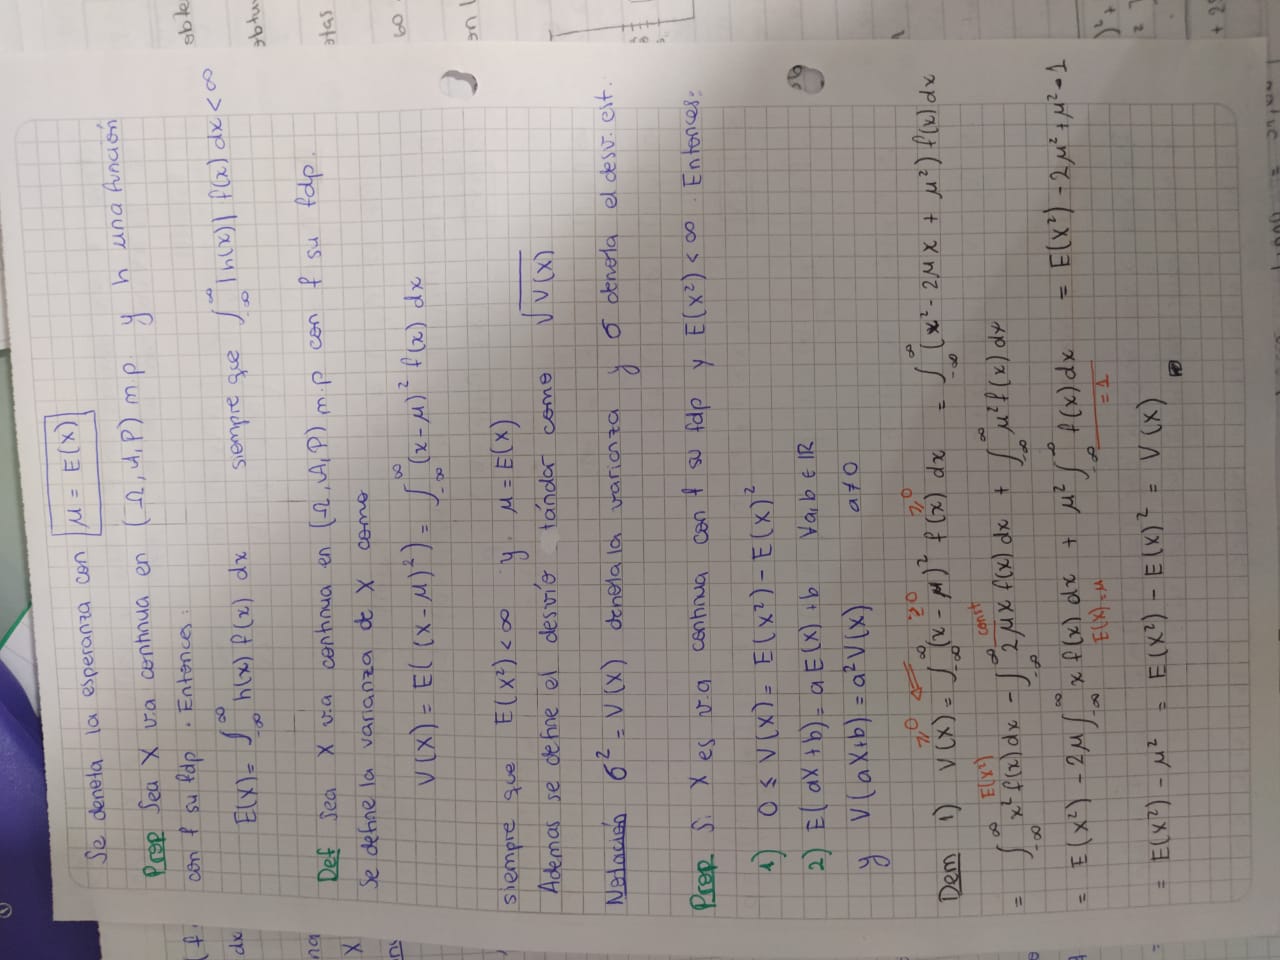 Se denota la esperanza con μ = E(X)
Prop Sea X v.a continua en (Ω, A, P) m.p y h una función
con f su fdp. Entonces:
E(X) = ∫_{-∞}^{∞} h(x) f(x) dx siempre que ∫_{-∞}^{∞} |h(x)| f(x) dx < ∞
Def Sea X v.a continua en (Ω, A, P) m.p con f su fdp.
Se define la varianza de X como
V(X) = E((X-μ)²) = ∫_{-∞}^{∞} (x-μ)² f(x) dx
siempre que E(X²) < ∞ y μ = E(X)
Ademas se define el desvío tándar como √V(X)
Notación σ² = V(X) denota la varianza y σ denota el desv. est.
Prop Si X es v.a continua con f su fdp y E(X²) < ∞. Entonces:
1) 0 ≤ V(X) = E(X²) - E(X)²
2) E(aX+b) = aE(X)+b ∀a,b ∈ ℝ
y V(aX+b) = a²V(X) a≠0
≥0 ⇐ ≥0 ≥0
Dem 1) V(X) = ∫_{-∞}^{∞} (x-μ)² f(x) dx = ∫_{-∞}^{∞} (x² - 2μx + μ²) f(x) dx
E(X²) const
= ∫_{-∞}^{∞} x² f(x) dx - ∫_{-∞}^{∞} 2μx f(x) dx + ∫_{-∞}^{∞} μ² f(x) dx
= E(X²) - 2μ ∫_{-∞}^{∞} x f(x) dx + μ² ∫_{-∞}^{∞} f(x) dx = E(X²) - 2μ² + μ²·1
E(X)=μ =1
= E(X²) - μ² = E(X²) - E(X)² = V(X)